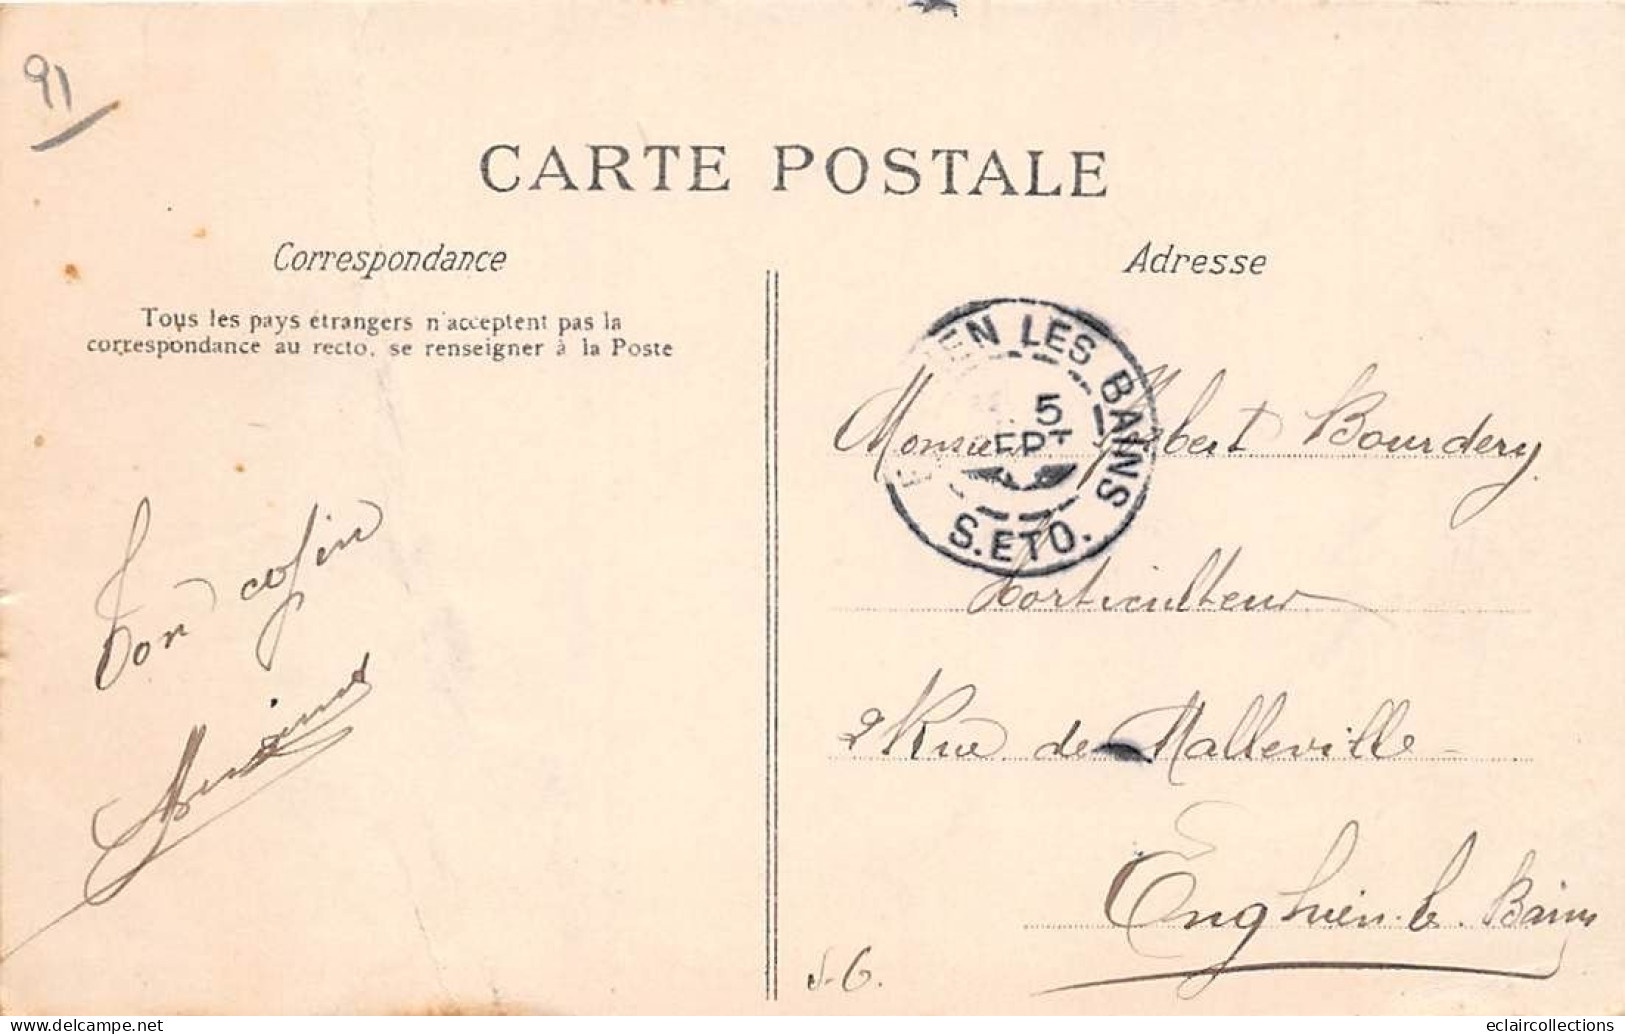 91
CARTE POSTALE
Correspondance
Tous les pays étrangers n'acceptent pas la
correspondance au recto, se renseigner à la Poste
Ton cousin
Adresse
EN LES BAINS
5
EPT
S.ETO.
Monsieur Albert Bourdery
horticulteur
2 Rue de Malleville
Enghien-le-Bains
S-O.
eclaircollections